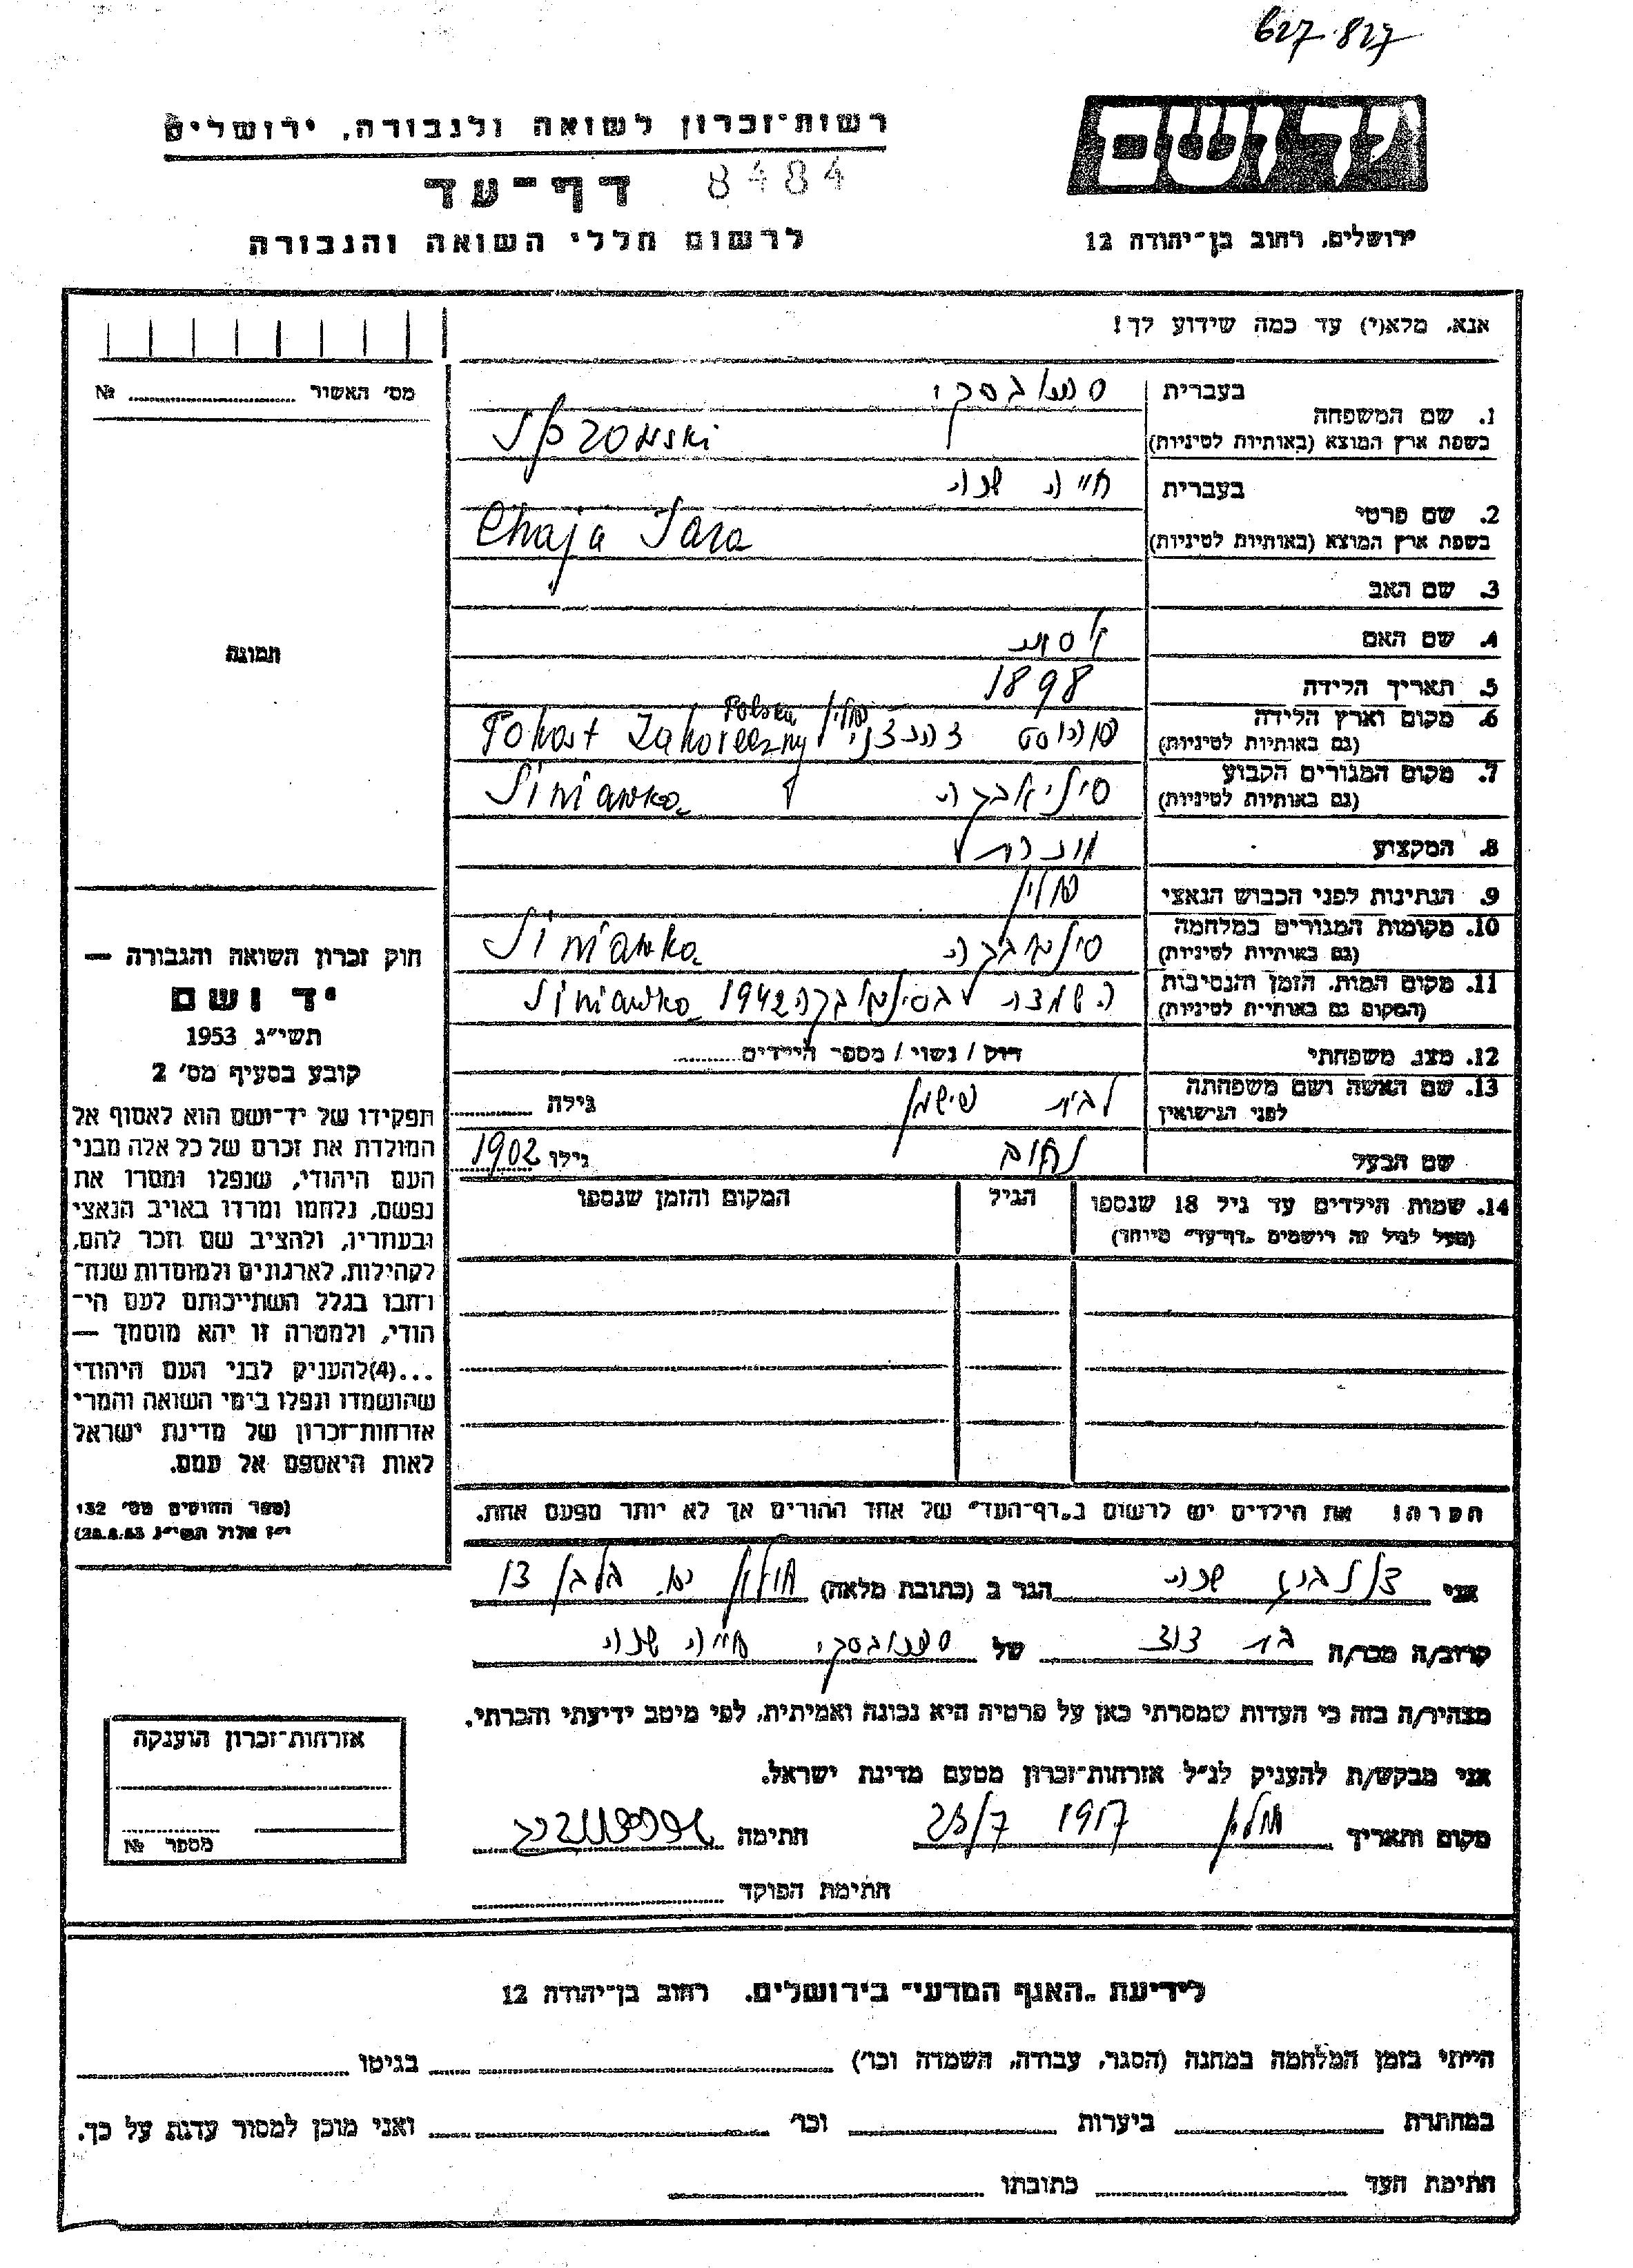 627.827
רשות-זכרון לשואה ולגבורה, ירושלים
דף-עד 8484
לרשום חללי השואה והגבורה
יד ושם
ירושלים, רחוב בן-יהודה 12
אנא, מלא(י) עד כמה שידוע לך!
מס' האשור № 
1. שם המשפחה
בעברית
בשפת ארץ המוצא (באותיות לטיניות)
2. שם פרטי
בעברית חיה שרה
בשפת ארץ המוצא (באותיות לטיניות) Chaja Sara
3. שם האב
4. שם האם
5. תאריך הלידה 1898
6. מקום וארץ הלידה
(גם באותיות לטיניות) פוהוסט Pohost Zahoreczny Polska פולין
7. מקום המגורים הקבוע
(גם באותיות לטיניות) סיניאבקה Siniawka
8. המקצוע
9. הנתינות לפני הכבוש הנאצי פולין
10. מקומות המגורים במלחמה
(גם באותיות לטיניות) סיניאבקה Siniawka
11. מקום המות, הזמן והנסיבות
(המקום גם באותיות לטיניות) בסיניאבקה 1942 Siniawka
12. מצב משפחתי רווק / נשוי / מספר הילדים
13. שם האשה ושם משפחתה
לפני הנישואין לבית פישמן גילה
שם הבעל נחום גילו 1902
14. שמות הילדים עד גיל 18 שנספו
(מעל לגיל זה רושמים "דף-עד" מיוחד)
הגיל
המקום והזמן שנספו
תמונה
חוק זכרון השואה והגבורה —
יד ושם
תשי"ג 1953
קובע בסעיף מס' 2
תפקידו של יד-ושם הוא לאסוף אל
המולדת את זכרם של כל אלה מבני
העם היהודי, שנפלו ומסרו את
נפשם, נלחמו ומרדו באויב הנאצי
ובעוזריו, ולהציב שם וזכר להם,
לקהילות, לארגונים ולמוסדות שנח-
רבו בגלל השתייכותם לעם הי-
הודי, ולמטרה זו יהא מוסמך —
...(4)להעניק לבני העם היהודי
שהושמדו ונפלו בימי השואה והמרי
אזרחות-זכרון של מדינת ישראל
לאות היאספם אל עמם.
(ספר החוקים מס' 132
י"ז אלול תשי"ג 28.8.53)
הערה! את הילדים יש לרשום ב"דף-העד" של אחד ההורים אך לא יותר מפעם אחת.
אני שרה הגר ב (כתובת מלאה) חולון
קרוב/ה מכר/ה של חיה שרה
מצהיר/ה בזה כי העדות שמסרתי כאן על פרטיה היא נכונה ואמיתית, לפי מיטב ידיעתי והכרתי.
אני מבקש/ת להעניק לנ"ל אזרחות-זכרון מטעם מדינת ישראל.
מקום ותאריך חולון חתימה
חתימת הפוקד
אזרחות-זכרון הוענקה
מספר №
לידיעת "האגף המדעי" בירושלים. רחוב בן-יהודה 12
הייתי בזמן המלחמה במחנה (הסגר, עבודה, השמדה וכו') בגיטו
במחתרת ביערות וכו' ואני מוכן למסור עדות על כך.
חתימת העד כתובתו